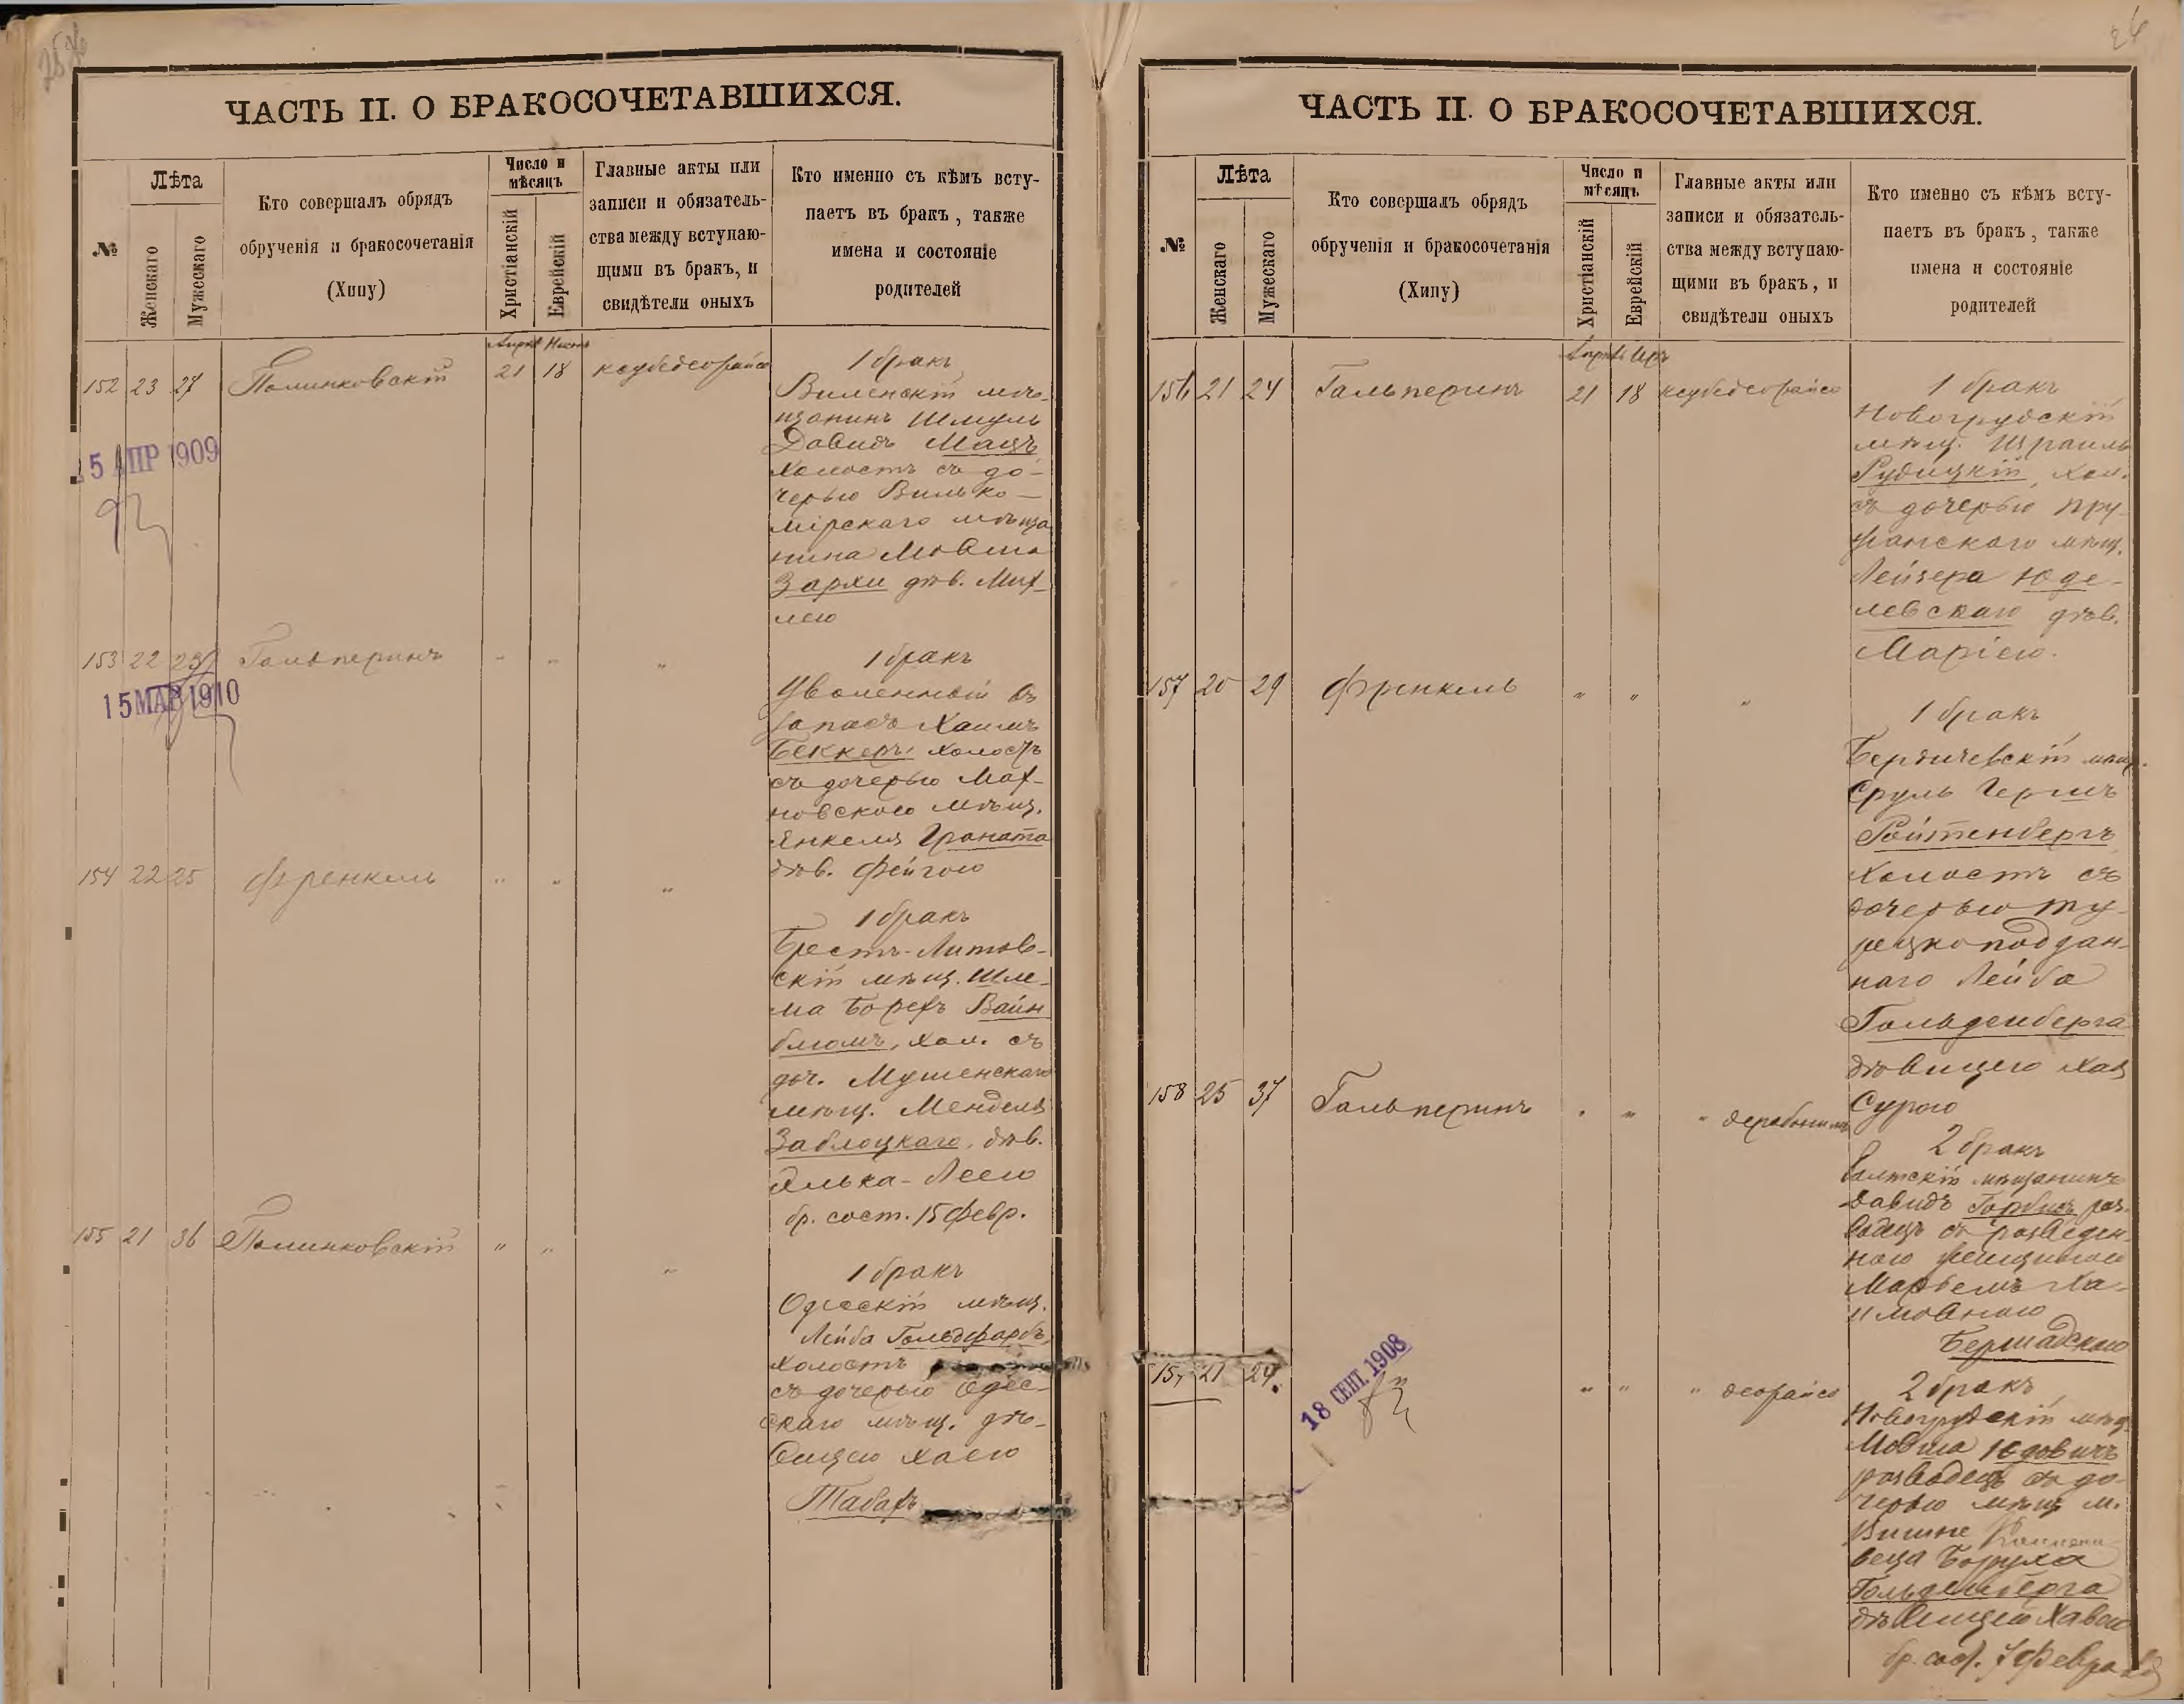 26
ЧАСТЬ II. О БРАКОСОЧЕТАВШИХСЯ.
№
Лѣта
Женскаго
Мужескаго
Кто совершалъ обрядъ
обрученія и бракосочетанія
(Хипу)
Число и
мѣсяцъ
Христіанскій
Еврейскій
Главные акты или
записи и обязатель-
ства между вступаю-
щими въ бракъ, и
свидѣтели оныхъ
Кто именно съ кѣмъ всту-
паетъ въ бракъ, также
имена и состояніе
родителей
152 23 27 Полинковскій 21 18 ксубедеорайсо
1 бракъ
Виленскій мѣ-
щанинъ Шмуль
Давидъ Мацъ
холостъ съ до-
черью Вилько-
мірскаго мѣща
нина Мовша
Зархи дѣв. Мих-
лею
5 АПР 1909
153 22 23 Гальперинъ " " "
1 бракъ
Уволенный въ
запасъ Хаимъ
Беккеръ холостъ
съ дочерью Мах-
новскаго мѣщ.
Янкеля Граната
дѣв. Фейгою
15 МАР 1910
154 22 25 Френкель " " "
1 бракъ
Брестъ-Литов-
скій мѣщ. Шле-
ма Борехъ Вайн
блюмъ, хол. съ
доч. Мушенскаго
мѣщ. Менделя
Заблоцкаго, дѣв.
Элька-Леею
бр. сост. 15 февр.
155 21 36 Полинковскій " " "
1 бракъ
Одесскій мѣщ.
Лейба Гольдфарбъ
холостъ
съ дочерью Одес-
скаго мѣщ. дѣ-
вицею Хаею
Табахъ
ЧАСТЬ II. О БРАКОСОЧЕТАВШИХСЯ.
№
Лѣта
Женскаго
Мужескаго
Кто совершалъ обрядъ
обрученія и бракосочетанія
(Хипу)
Число и
мѣсяцъ
Христіанскій
Еврейскій
Главные акты или
записи и обязатель-
ства между вступаю-
щими въ бракъ, и
свидѣтели оныхъ
Кто именно съ кѣмъ всту-
паетъ въ бракъ, также
имена и состояніе
родителей
156 21 24 Гальперинъ 21 18 ксубедеорайсо
1 бракъ
Новогрудскій
мѣщ. Израиль
Рудицкій, хол.
съ дочерью Пру
жанскаго мѣщ.
Лейзера Юде-
левскаго дѣв.
Маріею.
157 20 29 Френкель " " "
1 бракъ
Бердичевскій мѣщ.
Сруль Гершъ
Ройтенбергъ
холостъ съ
дочерью ту-
рецкоподдан-
наго Лейба
Гольденберга
дѣвицею Хая
Сурою
158 25 37 Гальперинъ " " "
2 бракъ
Балтскій мѣщанинъ
Давидъ Горбисъ раз-
водецъ съ разведен-
ною женщиною
Марьемъ Ха-
имовною
Бершадскою
21 24 " " " деорайсо
18 СЕНТ. 1908
2 бракъ
Новогрудскій мѣщ.
Мовша Юдовичъ
разводецъ съ до-
черью мѣщ м.
веца Боруха
Гольденберга
дѣвицею Хавою
бр. сост. 7 февраля